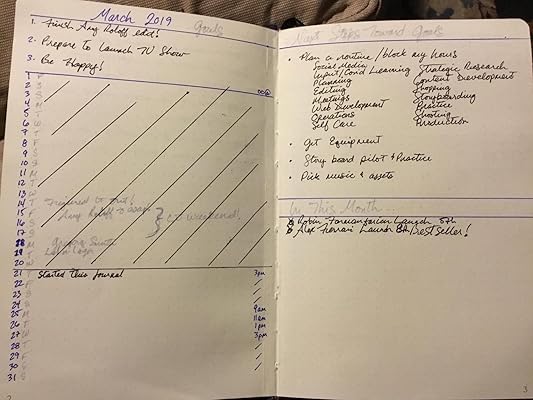 March 2019 Goals
1. Finish Amy Roloff edit!
2. Prepare to Launch TV Show
3. Be Happy!
1 F
2 S
3 S
4 M
5 T
6 W
7 T
8 F
9 S
10 S
11 M
12 T
13 W
14 T
15 F
16 S
17 S
18 M
19 T
20 W
21 T Started this Journal 3pm
22 F
23 S
24 S
25 M 9am
26 T 11am
1pm
27 W 3pm
28 T
29 F
30 S
31 S
2
Next Steps Toward Goals
• Plan a routine / block my hours
Social Media Strategic Research
Planning Content Development
Editing Shopping
Meetings Storyboarding
Web Development Practice
Operations Shooting
Self Care Production
• Get Equipment
• Story board pilot & Practice
• Pick music & assets
In This Month
Launch 5th
Launch 8th/best seller!
3